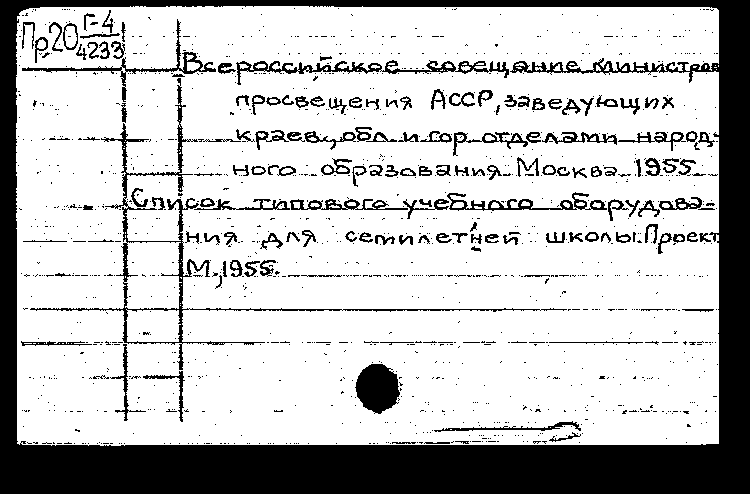 Пр.20 Г-4
4233
Всероссийское совещание министров
просвещения АССР, заведующих
краев., обл. и гор. отделами народ-
ного образования. Москва. 1955.
Список типового учебного оборудова-
ния для семилетней школы. Проект
М., 1955.